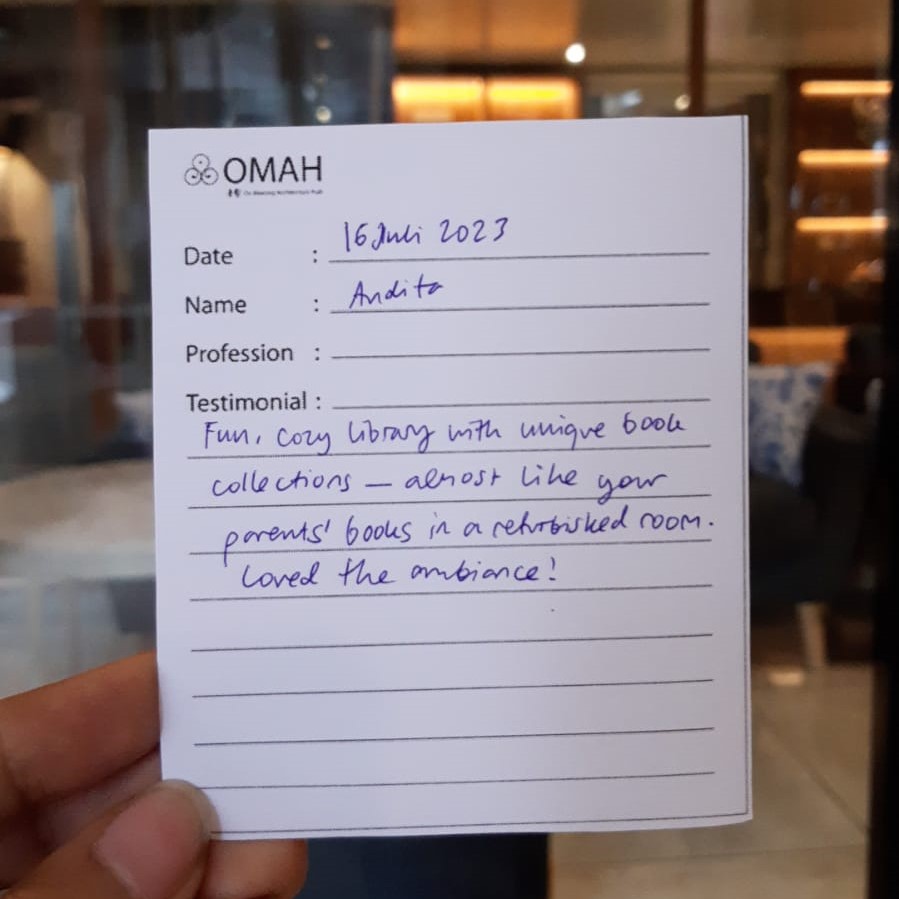 OMAH
Date : 16 Juli 2023
Name : Andita
Profession :
Testimonial :
Fun, cozy library with unique book
collections — almost like your
parents' books in a refurbished room.
Loved the ambiance!